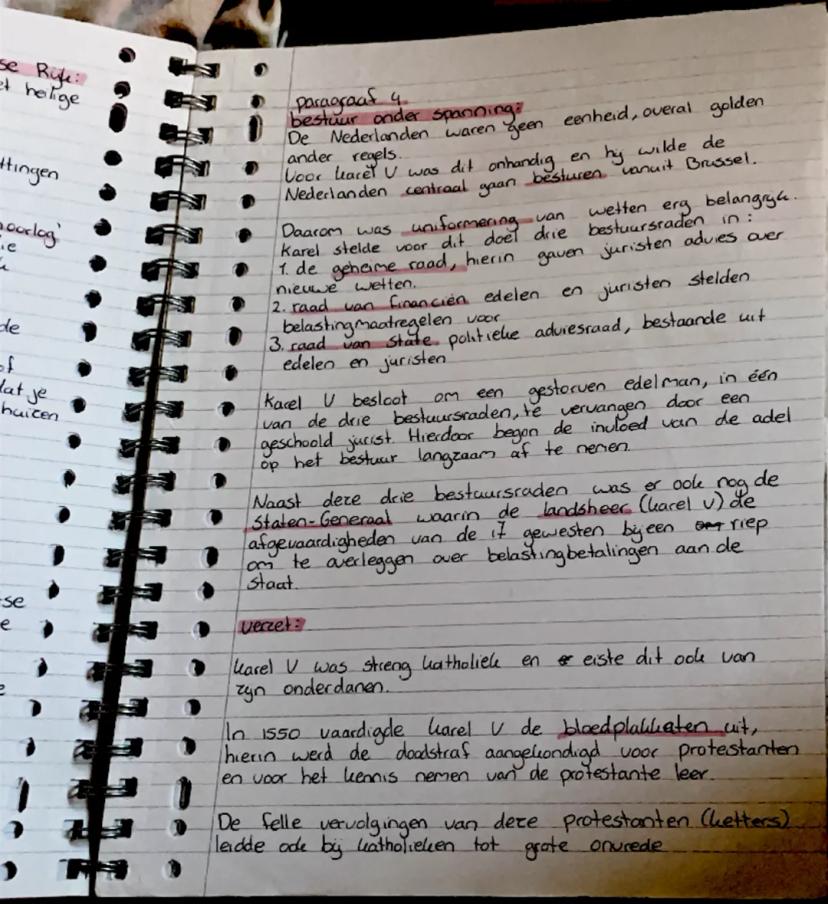 se Rijk:
et heilige
ttingen
oorlog'
ie
de
of
dat je
huizen
se
e
paragraaf 4
bestuur onder spanning:
De Nederlanden waren geen eenheid, overal golden
ander regels.
Voor Karel V was dit onhandig en hij wilde de
Nederlanden centraal gaan besturen vanuit Brussel.
Daarom was uniformering van wetten erg belangrijk.
Karel stelde voor dit doel drie bestuursraden in:
1. de geheime raad, hierin gaven juristen advies over
nieuwe wetten.
2. raad van financiën edelen en juristen stelden
belastingmaatregelen voor
3. raad van state politieke adviesraad, bestaande uit
edelen en juristen
Karel V besloot om een gestorven edelman, in één
van de drie bestuursraden, te vervangen door een
geschoold jurist. Hierdoor begon de invloed van de adel
op het bestuur langzaam af te nemen.
Naast deze drie bestuursraden was er ook nog de
Staten-Generaal waarin de landsheer (Karel V) de
afgevaardigheden van de 17 gewesten bijeen riep
om te overleggen over belastingbetalingen aan de
staat.
verzet:
Karel V was streng katholiek en eiste dit ook van
zijn onderdanen.
In 1550 vaardigde Karel V de bloedplakkaten uit,
hierin werd de doodstraf aangekondigd voor protestanten
en voor het kennis nemen van de protestante leer.
De felle vervolgingen van deze protestanten (ketters)
leidde ook bij katholieken tot grote onvrede